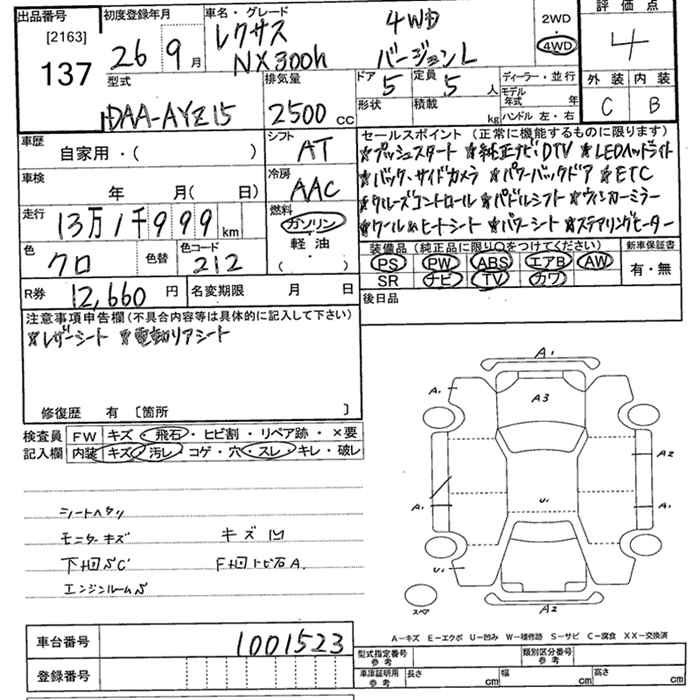 出品番号
[2163]
137
初度登録年月
26 9月
車名・グレード
レクサス 4WD
NX300h バージョンL
2WD
4WD
評価点
4
外装 内装
C B
型式
DAA-AYZ15
排気量
2500 cc
ドア 5
定員 5 人
形状
積載 kg
ディーラー・並行
モデル年式 年
ハンドル 左・右
車歴
自家用・( )
シフト
AT
車検
年 月( 日)
冷房
AAC
走行
13万1千999 km
燃料
ガソリン
軽油
・( )
色
クロ
色替
色コード
212
R券
12,660 円
名変期限 月 日
セールスポイント(正常に機能するものに限ります)
★プッシュスタート ★純正ナビDTV ★LEDヘッドライト
★バック、サイドカメラ ★パワーバックドア ★ETC
★クルーズコントロール ★パドルシフト ★ウィンカーミラー
★クール&ヒートシート ★パワーシート ★ステアリングヒーター
装備品(純正品に限り○をつけてください)
PS PW ABS エアB AW
SR ナビ TV カワ
新車保証書
有・無
後日品
注意事項申告欄(不具合内容等は具体的に記入して下さい)
★レザーシート ★電動リアシート
修復歴 有 〔箇所 〕
検査員
記入欄
FW キズ・飛石・ヒビ割・リペア跡・×要
内装 キズ・汚レ・コゲ・穴・スレ・キレ・破レ
シートヘタリ
モニターキズ キズ凹
下回SC F回トビ石A.
エンジンルームS
A1
A1
A3
A2
A1
U1
A1
U1
A2
スペア
A−キズ E−エクボ U−凹み W−補修跡 S−サビ C−腐食 XX−交換済
車台番号
1001523
登録番号
型式指定番号
参考
類別区分番号
参考
車庫証明用
参考
長さ cm
幅 cm
高さ cm